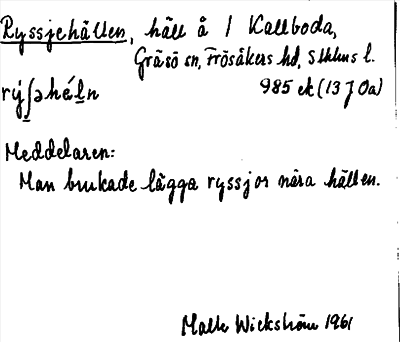 Ryssjehällen, häll å 1 Kallboda,
Gräsö sn, Frösåkers hd, Sthlms l.
rýʃəhéln 985 ek (13 J 0a)
Meddelaren:
Man brukade lägga ryssjor nära hällen.
Mats Wickström 1961